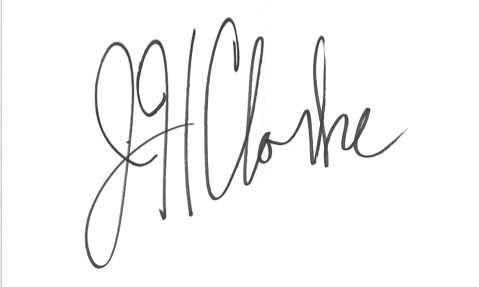 JH Clarke